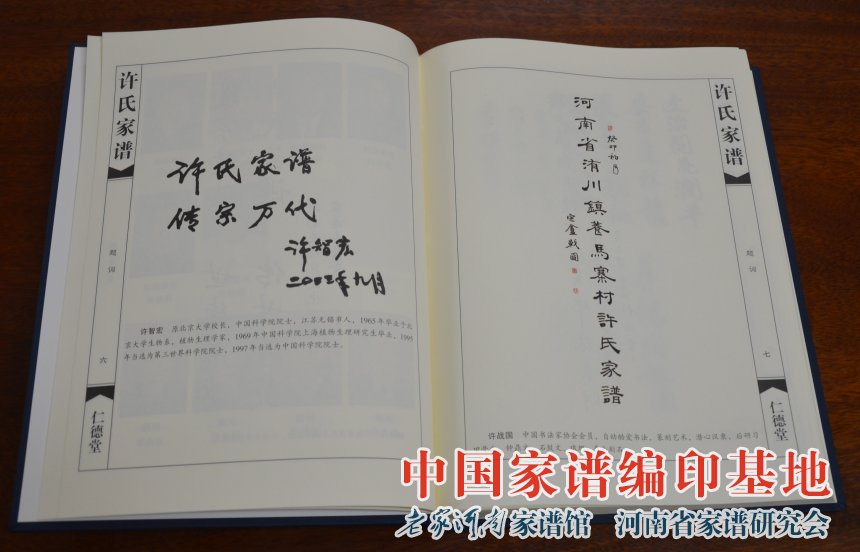 许氏家谱
题词
六
仁德堂
许氏家谱
传宗万代
许智宏
二〇〇二年九月
许智宏 原北京大学校长，中国科学院院士，江苏无锡市人，1965年毕业于北
京大学生物系，植物生理学家，1969年中国科学院上海植物生理研究生毕业，1995
年当选为第三世界科学院院士，1997年当选为中国科学院院士。
癸卯初月
河南省洧川鎮養馬寨村許氏家譜
戰國
许氏家谱
题词
七
仁德堂
许战国 中国书法家协会会员，自幼酷爱书法，篆刻艺术，潜心汉隶，后研习
中国家谱编印基地
老家河南家谱馆 河南省家谱研究会